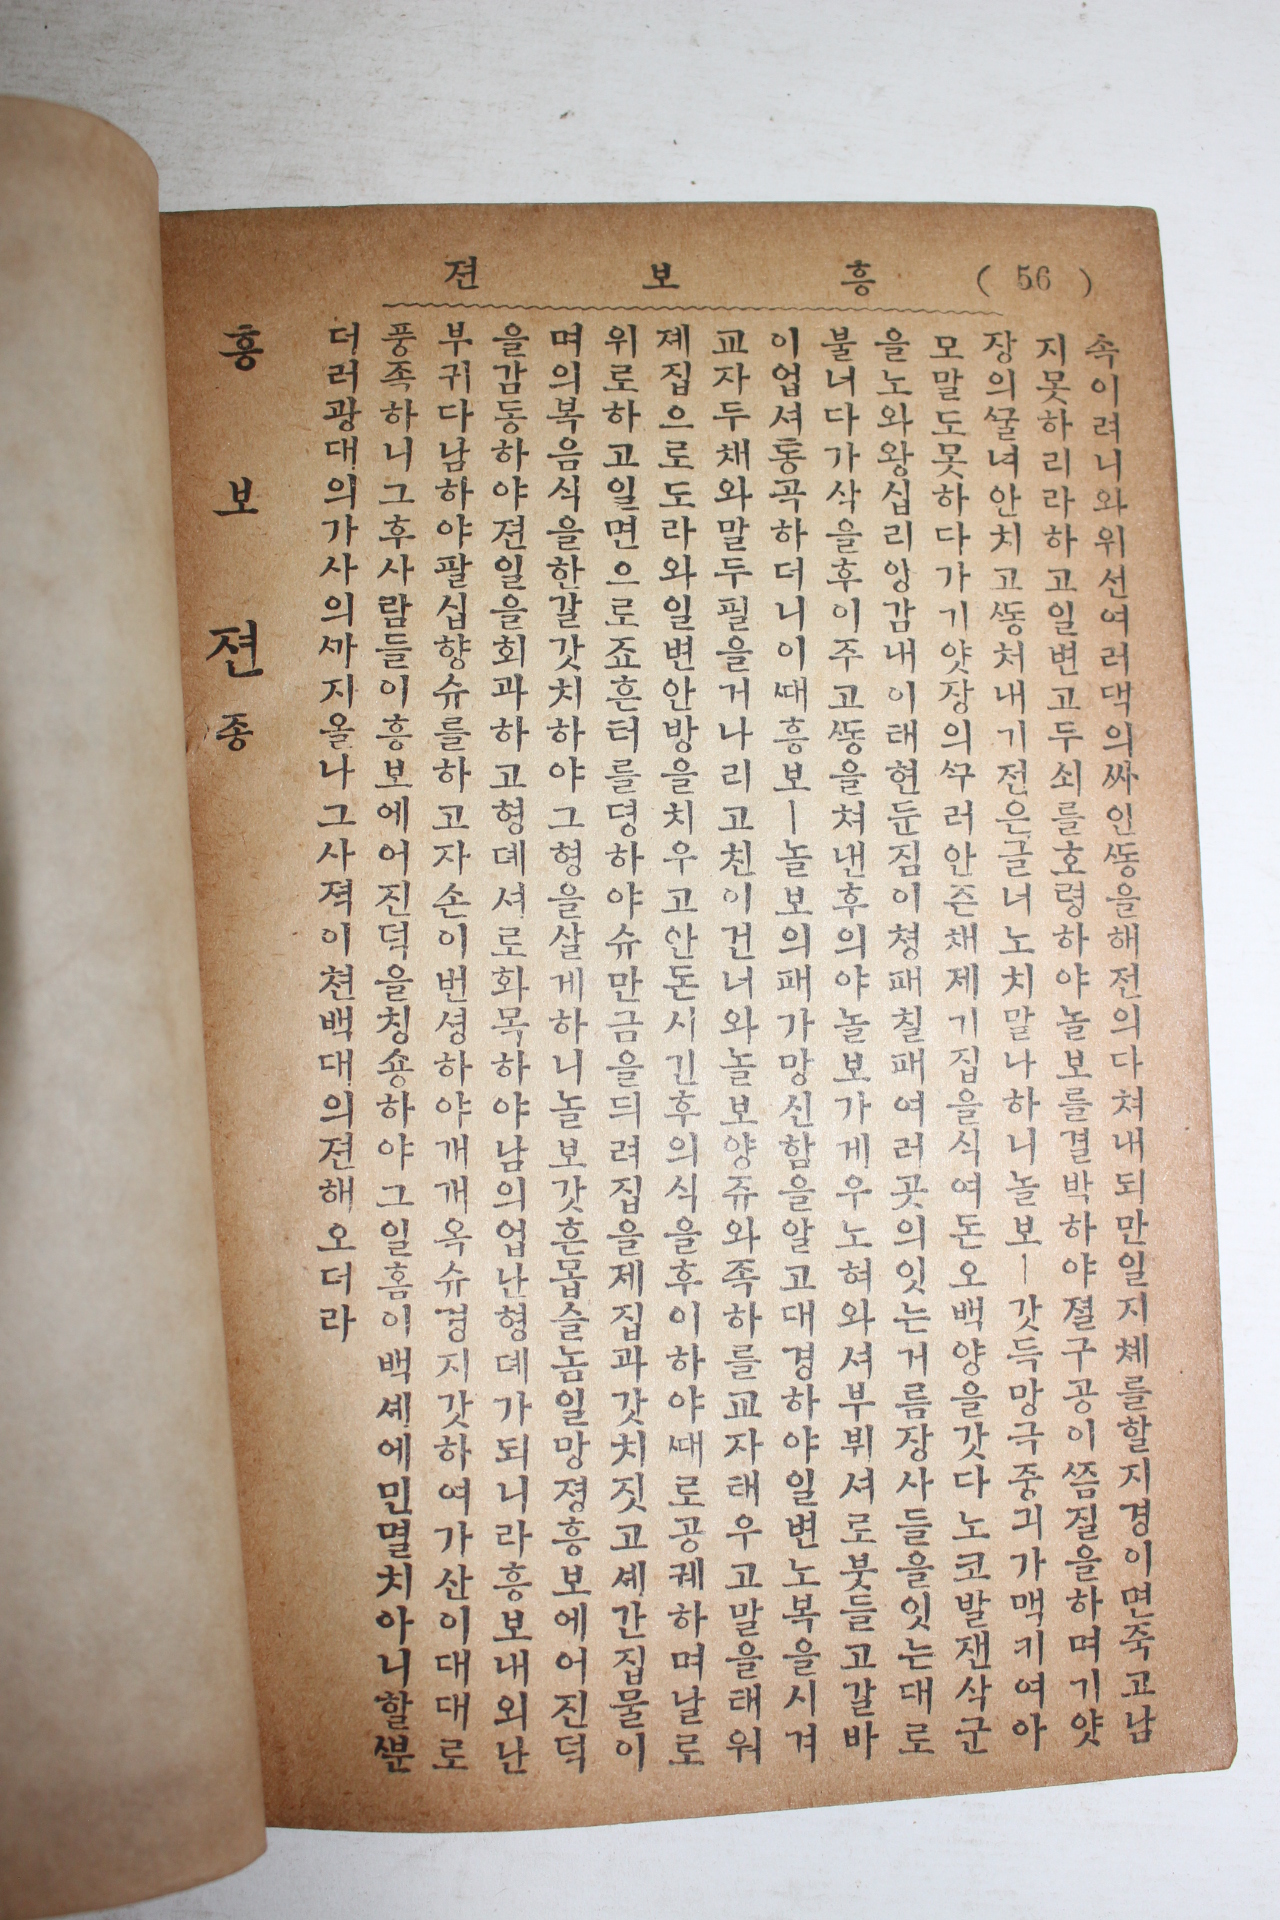 ( 56 ) 흥 보 젼
속이려니와위선여러댁의싸인ᄯᅩᆼ을해전의다쳐내되만일지체를할지경이면죽고남
지못하리라하고일변고두쇠를호령하야놀보를결박하야졀구공이ᄶᅵᆷ질을하며기얏
장의ᄭᅮᆯ녀안치고ᄯᅩᆼ처내기전은글너노치말나하니놀보ㅣ갓득망극중긔가맥키여아
모말도못하다가기얏장의ᄭᅮ러안즌채제기집을식여돈오백양을갓다노코발잰삭군
을노와왕십리앙감내이태현둔짐이쳥패칠패여러곳의잇는거름장사들을잇는대로
불너다가삭을후이주고ᄯᅩᆼ을쳐낸후의야놀보가게우노혀와셔부뷔셔로붓들고갈바
이업셔통곡하더니이ᄯᅢ흥보ㅣ놀보의패가망신함을알고대경하야일변노복을시겨
교자두채와말두필을거나리고친이건너와놀보양쥬와족하를교자태우고말을태워
졔집으로도라와일변안방을치우고안돈시긴후의식을후이하야ᄯᅢ로공궤하며날로
위로하고일면으로죠흔터를뎡하야슈만금을듸려집을제집과갓치짓고셰간집물이
며의복음식을한갈갓치하야그형을살게하니놀보갓흔몹슬놈일망졍흥보에어진덕
을감동하야젼일을회과하고형뎨셔로화목하야남의업난형뎨가되니라흥보내외난
부귀다남하야팔십향슈를하고자손이번셩하야개개옥슈경지갓하여가산이대대로
풍족하니그후사람들이흥보에어진덕을칭숑하야그일홈이백셰에민멸치아니할ᄲᅮᆫ
더러광대의가사의ᄭᅡ지올나그사젹이쳔백대의젼해오더라
흥 보 젼 종